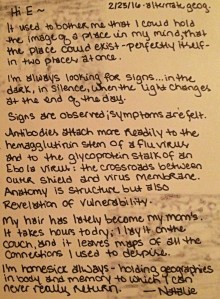 Hi E~
2/23/16 • alternate geog.
It used to bother me that I could hold
the image of a place in my mind, that
the place could exist - perfectly itself -
in two places at once.
I'm always looking for signs... in the
dark, in silence, when the light changes
at the end of the day.
Signs are observed; symptoms are felt.
Antibodies attach more readily to the
hemagglutinin stem of a flu virus
and to the glycoprotein stalk of an
Ebola virus: the crossroads between
outer shield and virus membrane.
Anatomy is structure but also
Revelation of vulnerability.
My hair has lately become my mom's.
It takes hours today; I lay it on the
couch, and it leaves maps of all the
connections I used to despise.
I'm homesick always - holding geographies
in body and memory to which I can
never really return.
— Natalie